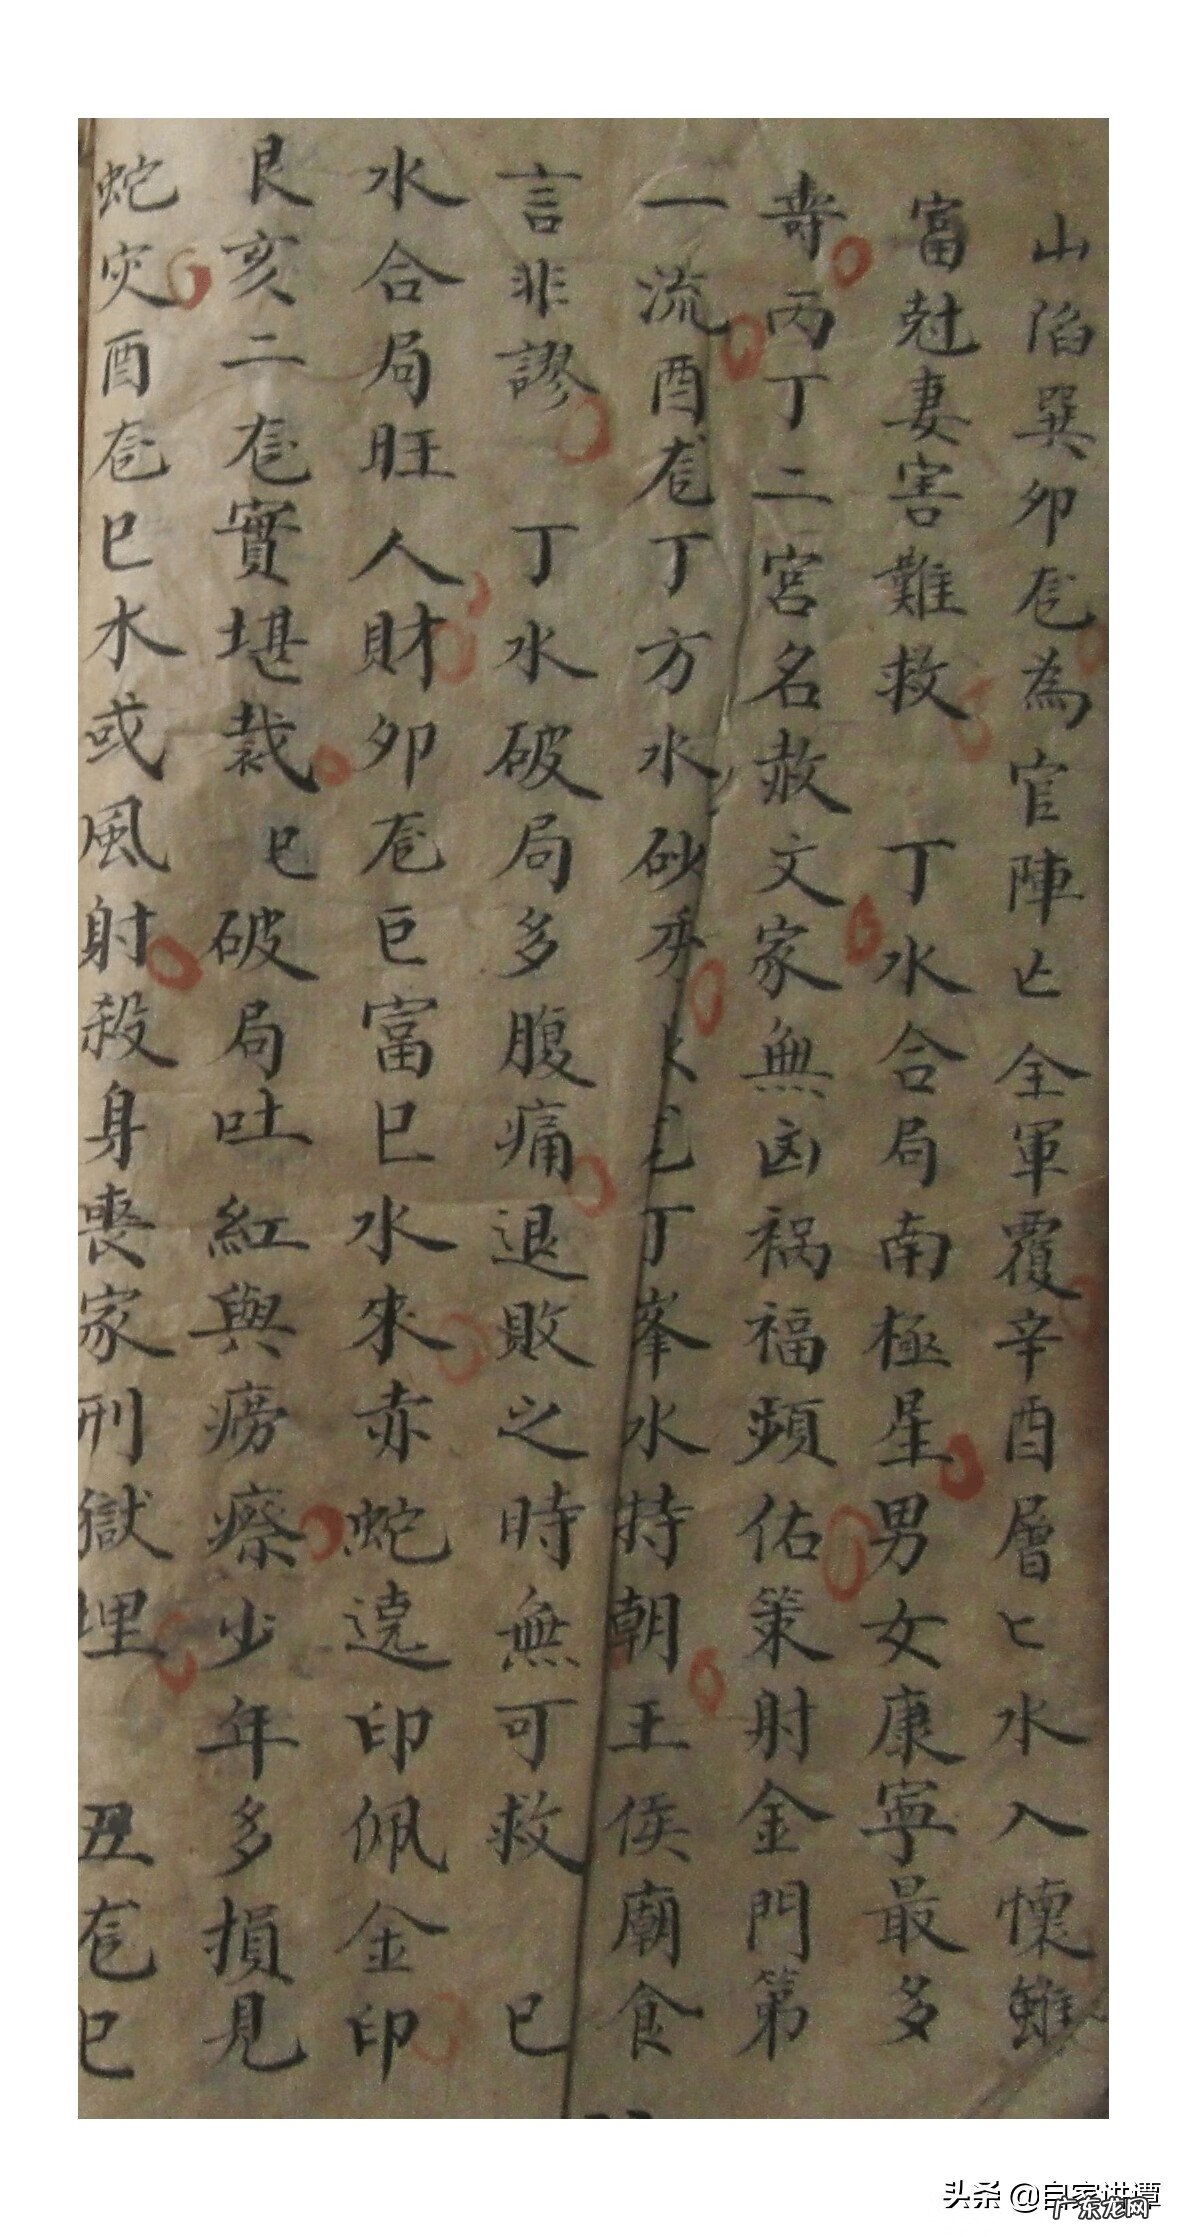 山陷巽卯䨇為官陣亡全軍覆辛酉層匕水入懷雖
富尅妻害難救 丁水合局南極星男女康寧最多
壽丙丁二宮名赦文家無凶禍福頭佑策射金門第
一流酉䨇丁方水砂丁峯水特朝王侯廟食
言非謬 丁水破局多腹痛退敗之時無可救 巳
水合局旺人財夘䨇巨富巳水來赤蛇遶印佩金印
艮亥二䨇實堪裁 巳破局吐紅與癆瘵少年多損見
蛇灾酉䨇巳水或風射殺身喪家刑獄埋 丑䨇巳
头条 @自家讲谭
广东龙网